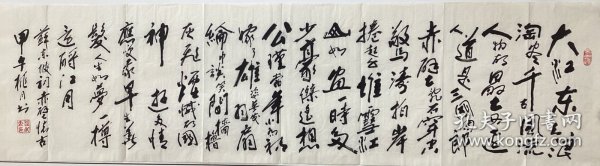 大江东去浪
淘尽千古风流
人物故垒西边
人道是三国周郎
赤壁乱石穿空
惊涛拍岸
捲起千堆雪江
山如画一时多
少豪杰遥想
公瑾当年小乔初
嫁了雄姿英发羽扇
纶巾谈笑间樯櫓
灰飞烟灭故国
神游多情
应笑我早生华
髮人生如梦一樽
还酹江月
苏东坡词赤壁怀古
甲午
孔夫子旧书网